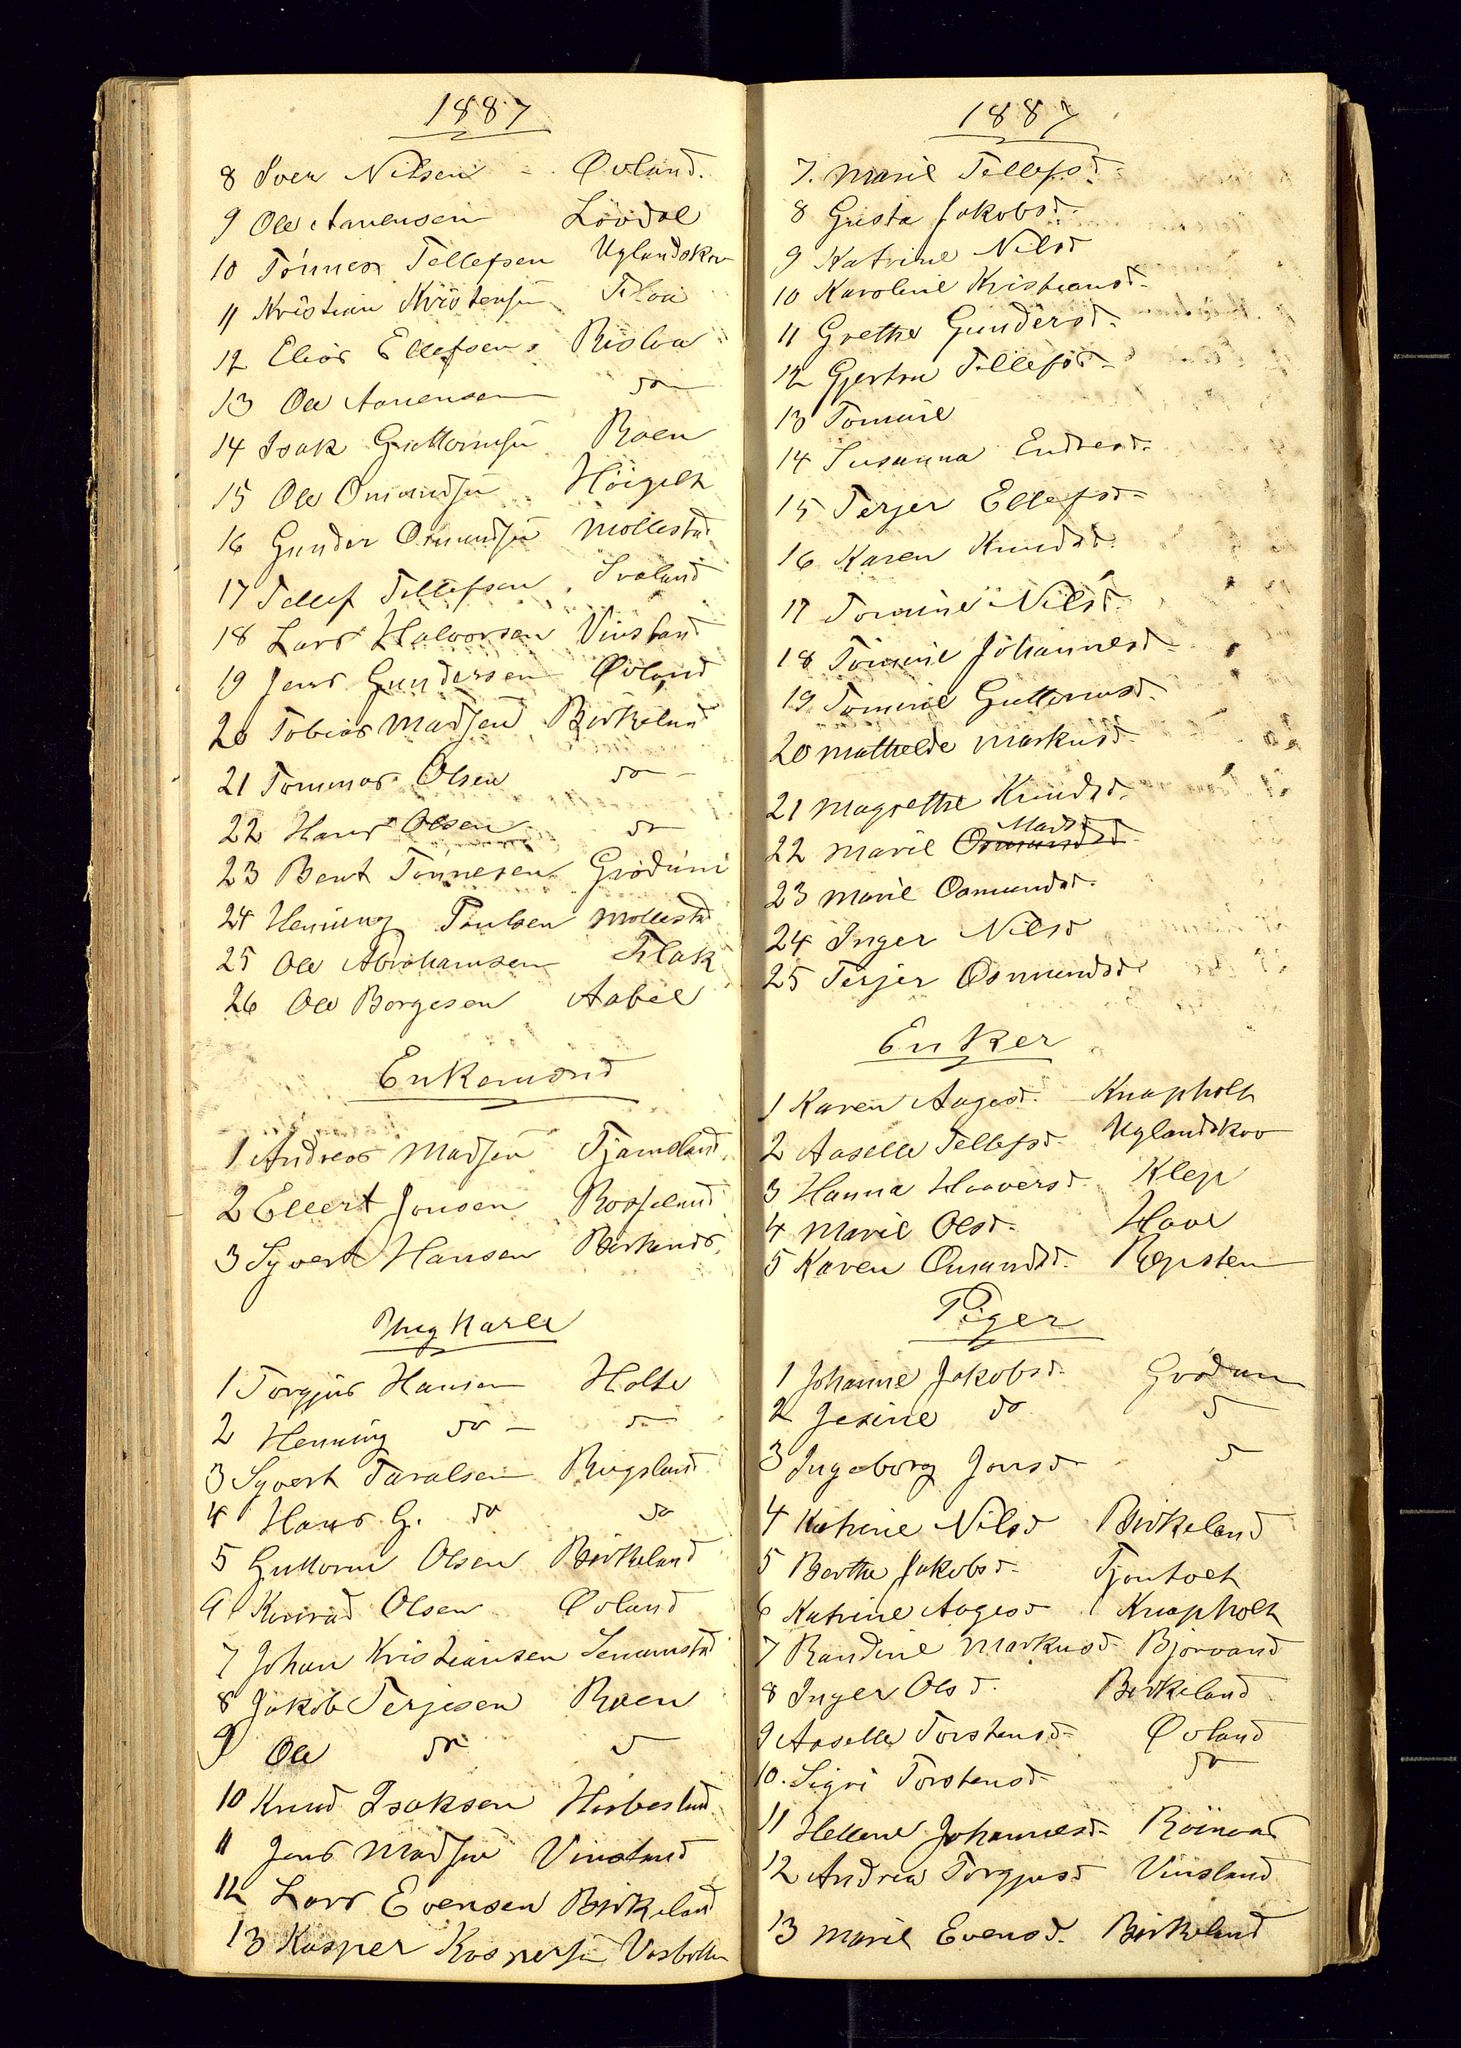 1887
8 Iver Nilsen - Øvland.
9 Ole Aanensen Lövdal
10 Tönnes Tellefsen Uglandskov
11 Kristian Kristensen Tiloa
12 Elias Ellefsen Risloa
13 Ole Aanensen do
14 Isak Guttormsen Roen
15 Ole Omundsen Höigilt
16 Gunder Osmundsen Mollestad
17 Tellef Tellefsen Svaland
18 Lars Halvorsen Vinsland
19 Jens Gundersen Øvland
20 Tobias Madsen Birkeland
21 Tommas Olsen do
22 Hans Olsen do
23 Bent Tönnesen Grödum
24 Henning Poulsen Mollestad
25 Ole Abrahamsen Flak
26 Ole Borgesen Aabel
Enkemænd
1 Andreas Madsen Tjamsland
2 Ellert Jonsen Rosseland
3 Syvert Hansen
Ungkarle
1 Torgjus Hansen Holte
2 Henning do - do
3 Syvert Taralsen Rugsland
4 Hans G. do do
5 Guttorm Olsen Birkeland
6 Konrad Olsen Øvland
7 Johan Kristiansen Senumstad
8 Jakob Terjesen Roen
9 Ole do do
10 Knud Isaksen Herbesland
11 Jens Madsen Vinsland
12 Lars Evensen Birkeland
13 Kasper Kaspersen Vasbotten
1887
7. Marie Tellefsd.
8 Gusta Jakobsd.
9 Katrine Nilsd
10 Karoline Kristiansd.
11 Grethe Gundersd.
12 Gjertru Tellefsd.
13 Tomine
14 Susanna Endresd.
15 Terjer Ellefsd.
16 Karen Knudsd.
17 Tomine Nilsd.
18 Tomine Johannesd.
19 Tomine Guttormsd.
20 Mathilde Markusd.
21 Magrethe Knudsd.
Mads
22 Marie Osmundsd.
23 Marie Osmundsd.
24 Inger Nilsd
25 Terjer Osmundsd.
Enker
1 Karen Aagesd. Knapholt
2 Aaselle Tellefsd. Uglandskov
3 Hanna Haaversd. Klep
4 Marie Olsd. Haave
5 Karen Omundsd. Repsten
Piger
1 Johanne Jakobsd. Grödum
2 Jesine do do
3 Ingeborg Jensd do
4 Katrine Nilsd Birkeland
5 Berthe Jakobsd. Tjontvelt
6 Katrine Aagesd Knapholt
7 Randine Markusd. Bjorvand
8 Inger Olsd. Birkeland
9 Aaselle Torstensd. Øvland
10. Sigri Torstensd. do
11 Hellene Johannesd. Röinaas
12 Andrea Torgjusd Vinsland
13 Marie Evensd. Birkeland